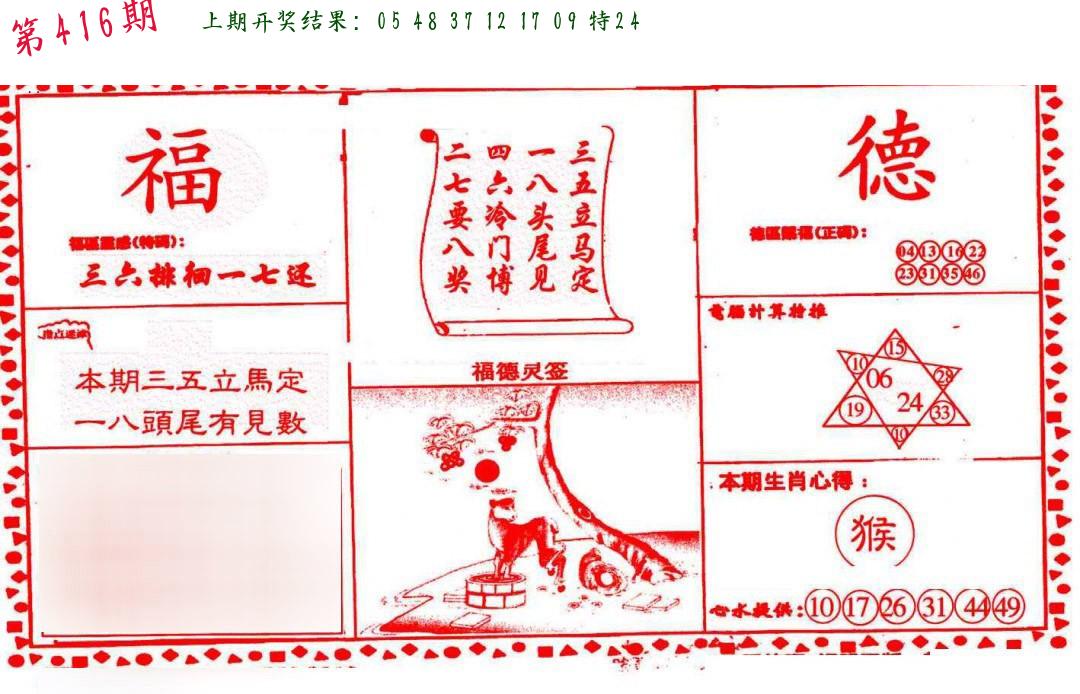 第416期
上期开奖结果：05 48 37 12 17 09 特24
福
福區靈感(特碼)：
三六排徊一七还
本期三五立馬定
一八頭尾有見數
三五立马定
一八头尾见
四六冷门博
二七要八奖
福德灵签
德
(正碼)：
04 13 16 22
23 31 35 46
電腦計算特推
15
10 28
06
24
19 33
10
本期生肖心得：
猴
心水提供：10 17 26 31 44 49